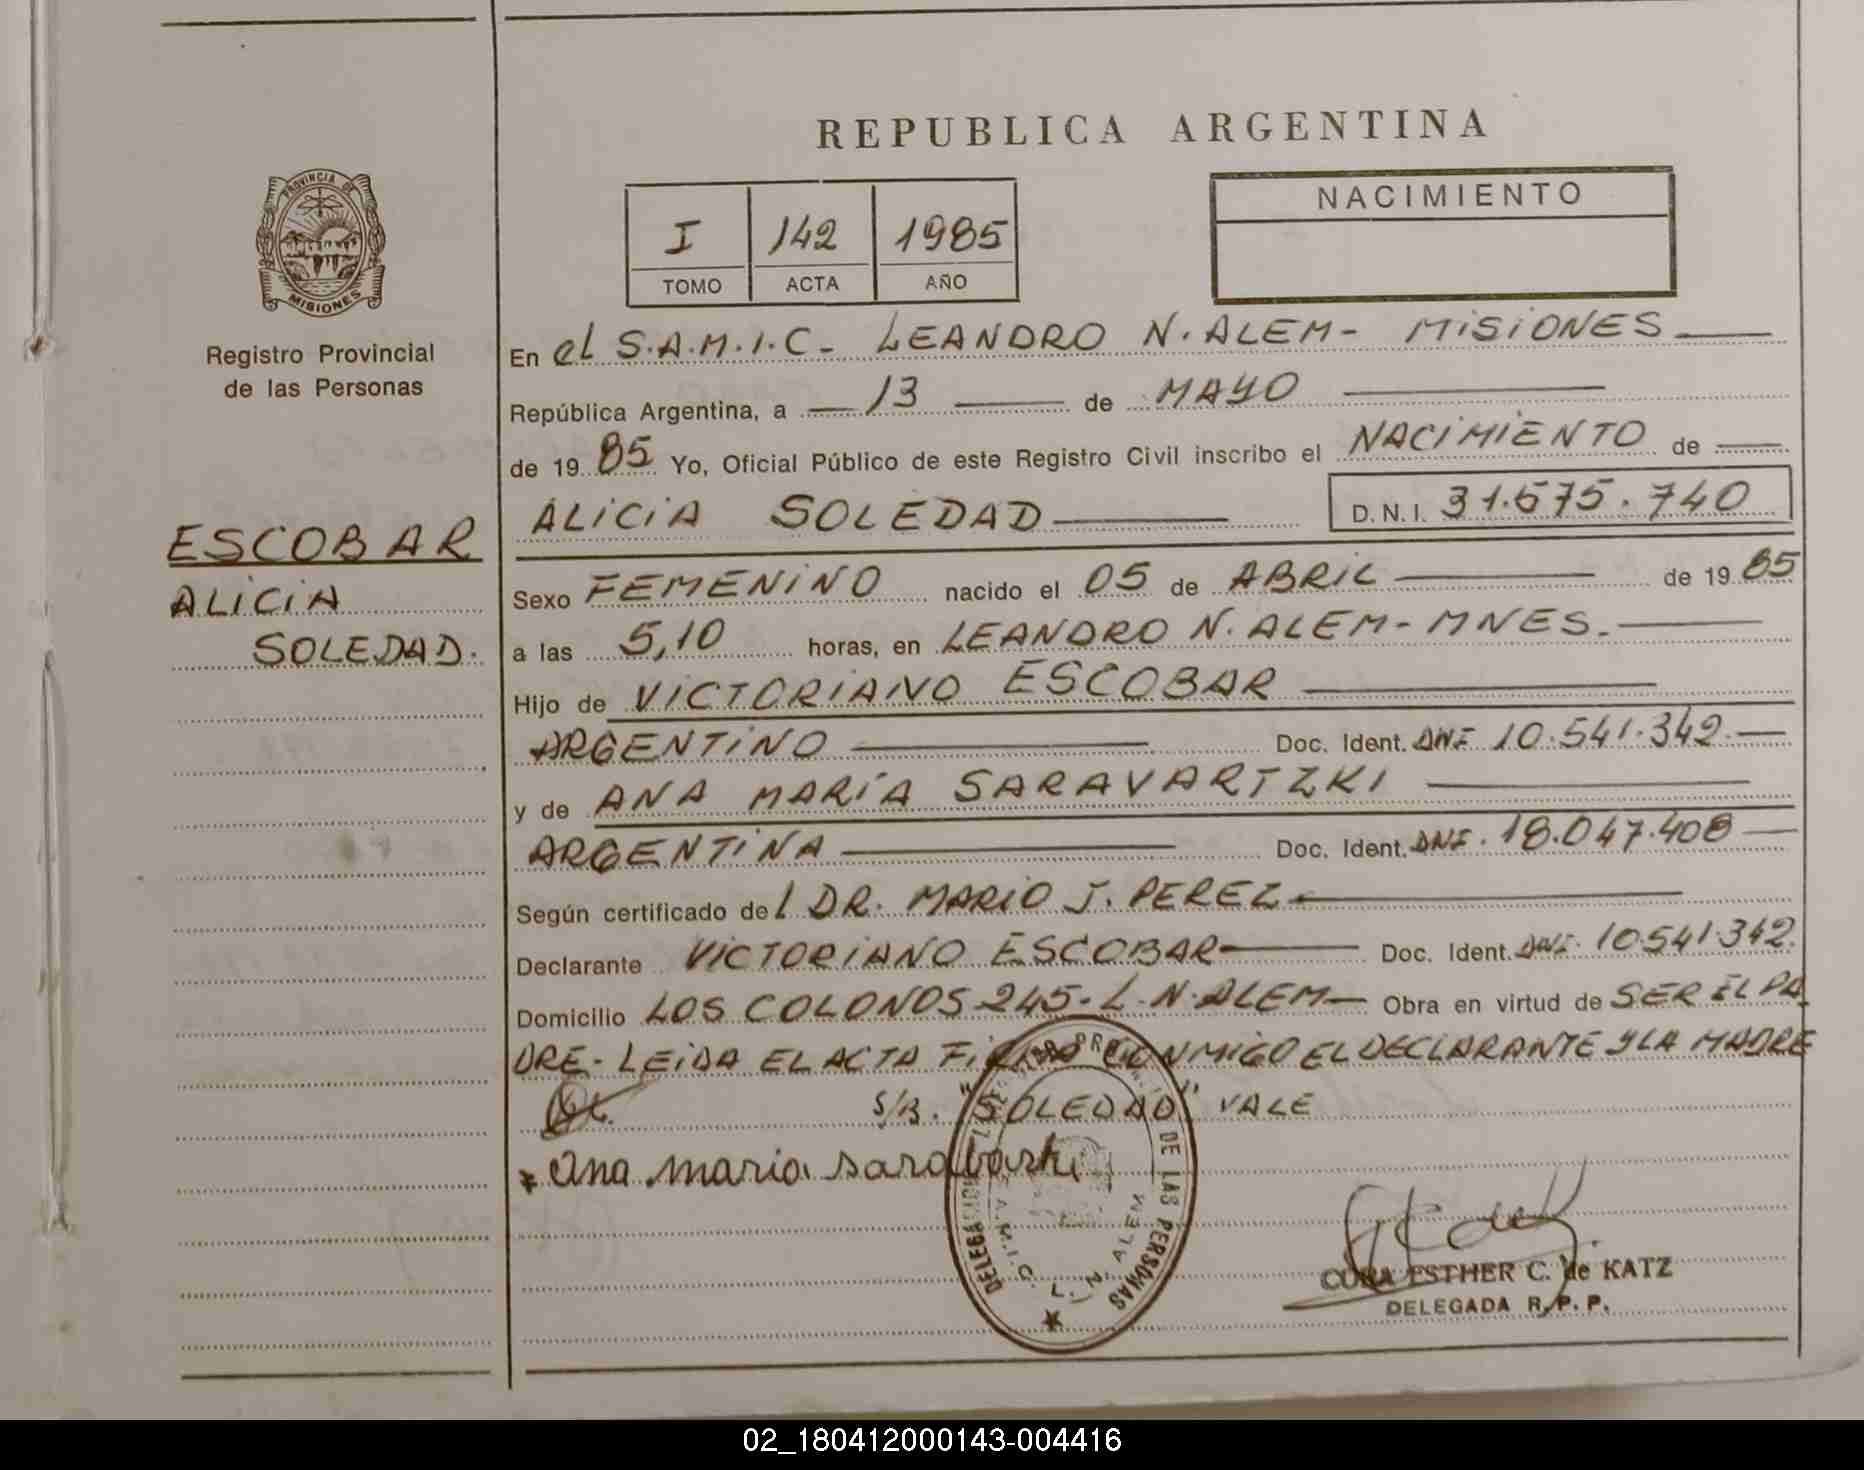 REPUBLICA ARGENTINA
PROVINCIA DE
MISIONES
Registro Provincial
de las Personas
I 142 1985
TOMO ACTA AÑO
NACIMIENTO
En el S.A.M.I.C- LEANDRO N. ALEM- MISIONES
República Argentina, a 13 de MAYO
de 1985 Yo, Oficial Público de este Registro Civil inscribo el NACIMIENTO de
ALICIA SOLEDAD D.N.I. 31.575.740
ESCOBAR
ALICIA
SOLEDAD.
Sexo FEMENINO nacido el 05 de ABRIL de 1985
a las 5,10 horas, en LEANDRO N. ALEM- MNES.
Hijo de VICTORIANO ESCOBAR
ARGENTINO Doc. Ident. DNI 10.541.342.
y de ANA MARÍA SARAVARTZKI
ARGENTINA Doc. Ident. DNI. 18.047.408
Según certificado del DR. MARIO J. PEREZ
Declarante VICTORIANO ESCOBAR Doc. Ident. DNI. 10.541.342.
Domicilio LOS COLONOS 245- L.N. ALEM- Obra en virtud de SER EL PA
DRE- LEIDA EL ACTA FIRMA CONMIGO EL DECLARANTE Y LA MADRE
S/B. "SOLEDAD" VALE
Ana maria
DE LAS PERSONAS
S.A.M.I.C. L. N. ALEM
ESTHER C. de KATZ
DELEGADA R.P.P.
02_180412000143-004416